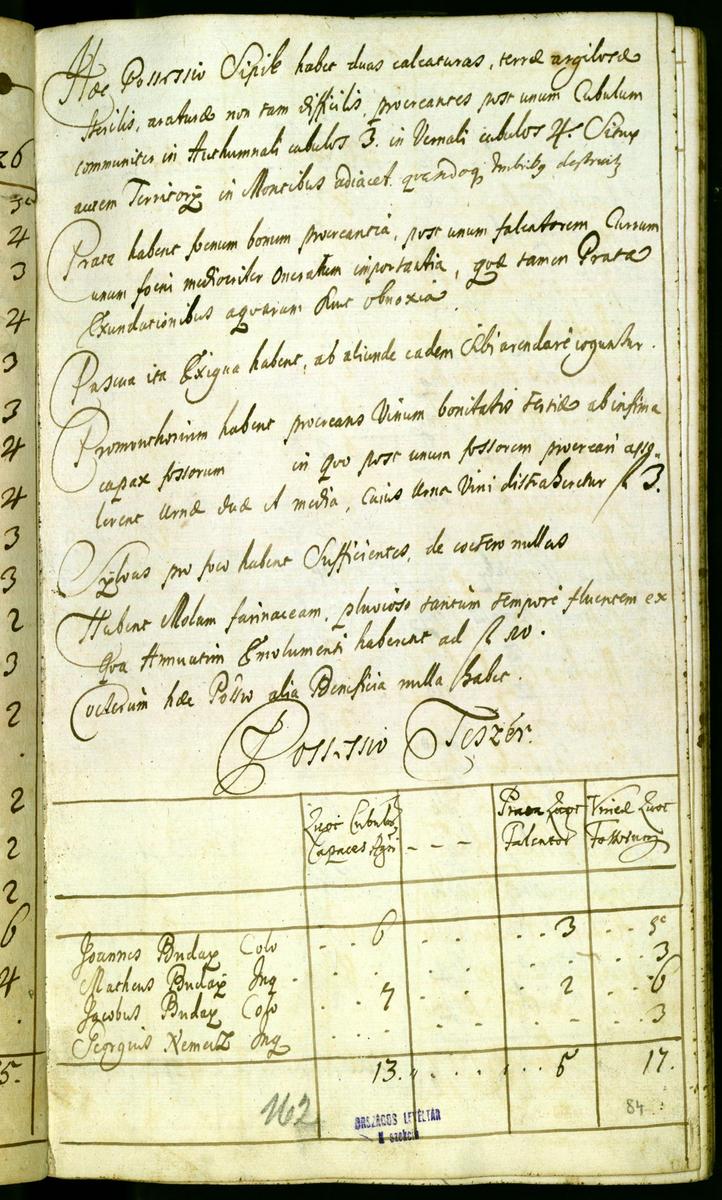 Hæc Possessio Sipik habet duas calcaturas, terræ argilosæ
sterilis, araturæ non tam difficilis, procreantes post unum Cubulum
communiter in Authumnali cubulos 3. in Vernali cubulos 4. Situs
autem Territorÿ in Montibus adiacet, quandoq; Imbribq destruitz
Prata habent foenum bonum procreantia, post unum falcatorem Currum
unum foeni mediocriter Oneratum importantia, quæ tamen Prata
Exundationibus aquarum sunt obnoxia.
Pascua ita Exigua habent, ab aliunde eadem sibi arendare coguntur.
Promonthorium habent procreans Vinum bonitatis tertiæ ab infima
capax fossorum in quo post unum fossorem procreari asso-
lerent Urnæ duæ et media, Cuius Urna Vini distraheretur f 3.
Sÿlvas pro foco habent Sufficientes, de coetero nullas
Habent Molam farinaceam, pluvioso tantum tempore fluentem ex
qva Annuatim Emolumenti haberent ad f 20.
Coeterum hæc Possio alia Beneficia nulla habet.
Possessio Teszér.
Quot Cubulor Prata Quot Vineæ Quot
Capaces Agri - - - Falcator Fossorum
Joannes Buday Colo . . 6 . . . . 3 . . 5
Matheus Buday Inq . . . . . . 3
Jacobus Buday Colo . . 7 . . . . 2 . . 6
Georgius Nemetz Inq . . . . - - 3
13. . . . . . 5 17.
162
ORSZÁGOS LEVÉLTÁR
N szekció
84
26
4
3
4
3
3
4
4
3
3
2
3
2
2
2
2
6
4
5.